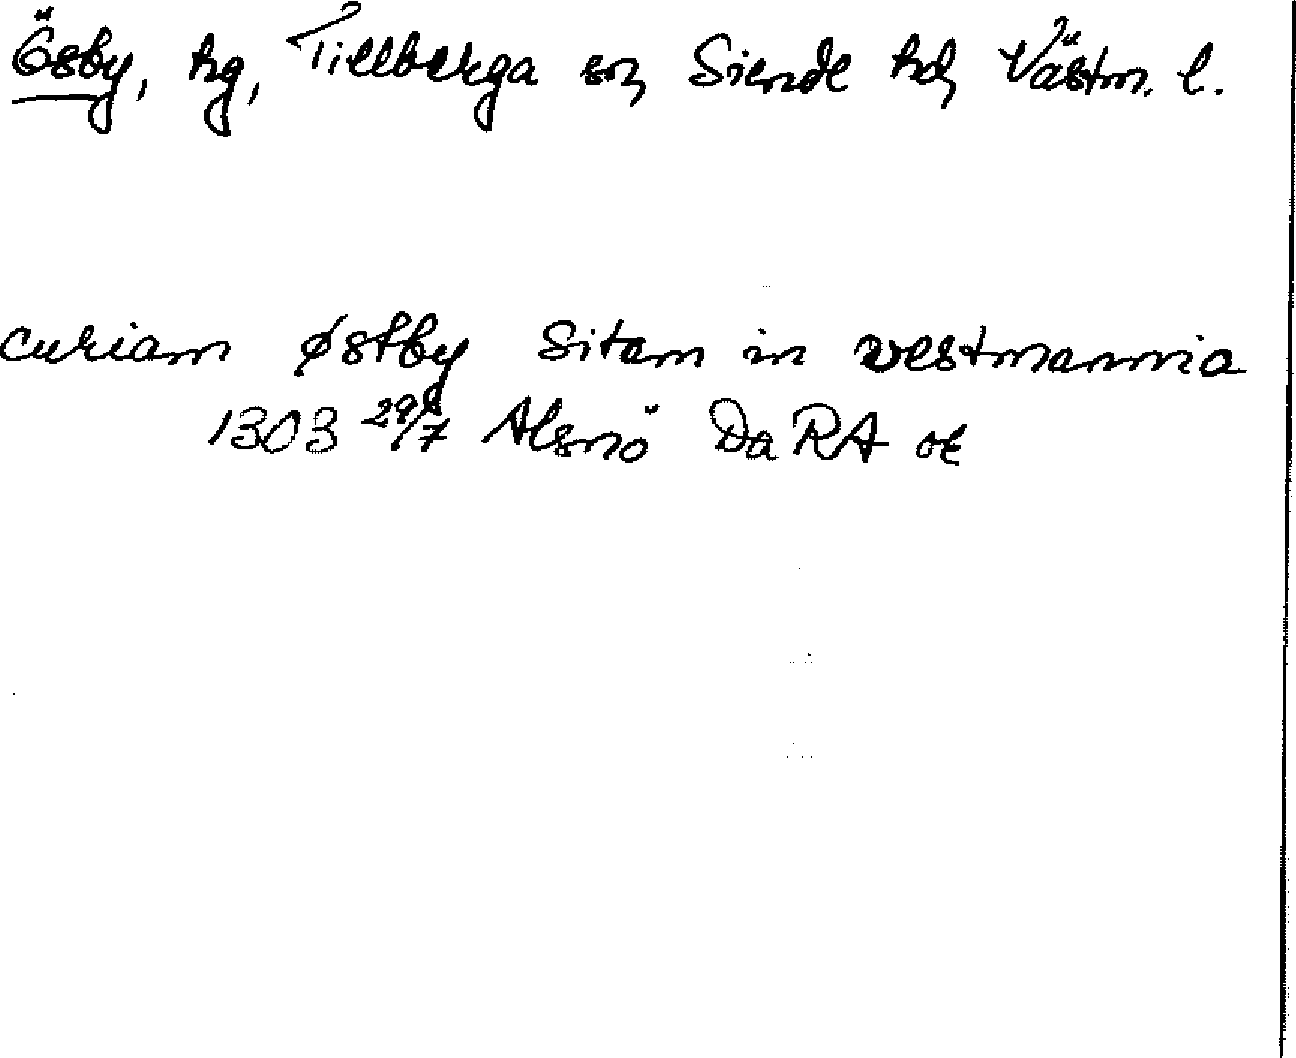 Ösby, hg, Tillberga sn, Siende hd, Västm. l.
curiam østby sitam in westmannia
1303 29/7 Alsnö DaRA or